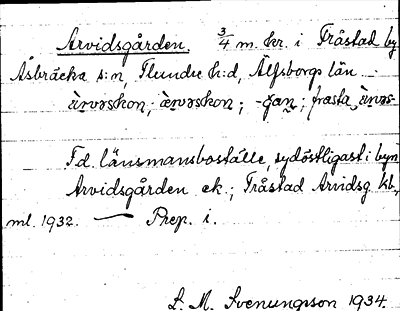 Arvidsgården. 3/4 m. kr. i Fråstad by
Åsbräcka s:n, Flundre h:d, Älfsborgs län.
ärvəskon; ærvəskon; -gan; frasta
F.d. länsmansboställe, sydöstligast i byn
Arvidsgården ek.; Fråstad Arvidsg. kb.,
ml. 1932. — Prep. i.
S. M. Svenungsson 1934.